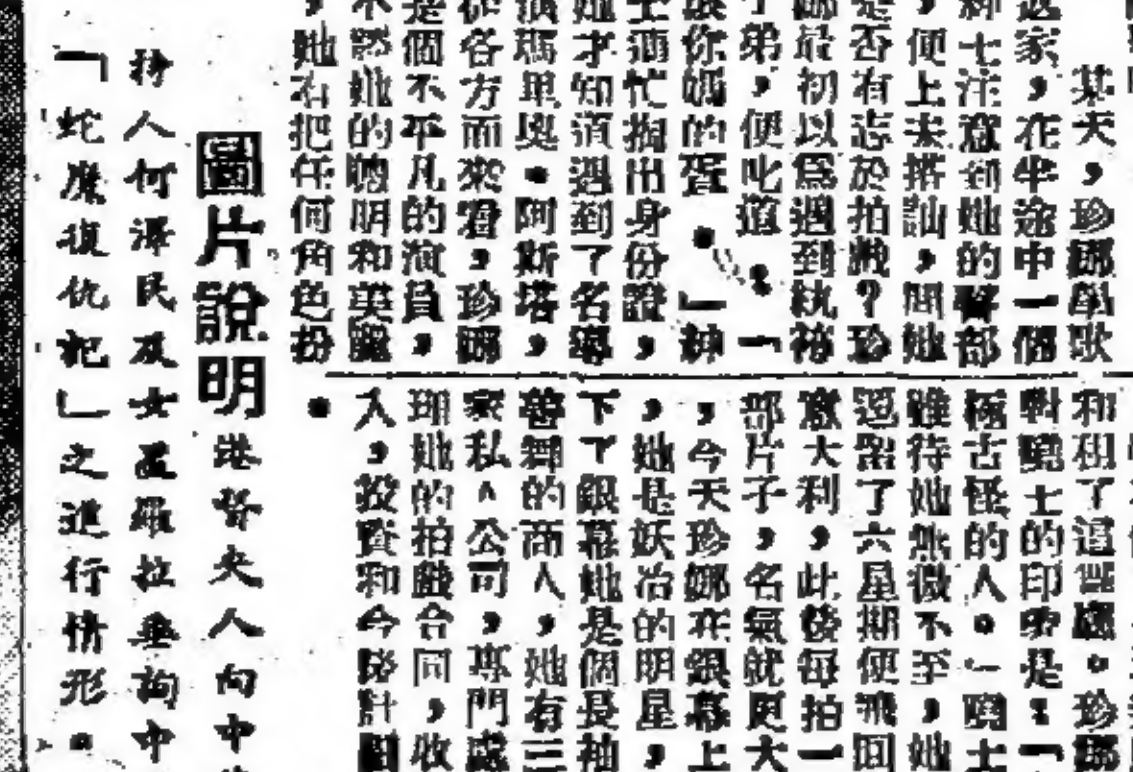 某天，珍娜單歌
返家，在半途中一個
紳士注意到她的臀部
，便上去搭訕，問她
是否有志於拍戲？珍
娜最初以爲遇到紈袴
子弟，便叱道：「
你媽的蛋．」紳
士連忙掏出身份證，
她才知道遇到了名導
演瑪里奧．阿斯塔，
從各方面來看，珍娜
是個不平凡的演員，
不然她的聰明和美麗
，她不把任何角色扮
和租了這
對驍士的印象是：「
極古怪的人．」驍士
雖待她無微不至，她
逗留了六星期便飛回
意大利，此後每拍一
部片子，名氣就更大
，今天珍娜在銀幕上
，她是妖冶的明星，
下了銀幕她是個長袖
善舞的商人，她有三
家私人公司，專門處
理她的拍戲合同，收
入，投資和今後計劃
．
圖片說明 港督夫人向中
持人何澤民及女 羅拉垂詢中
「蛇魔復仇記」之進行情形．